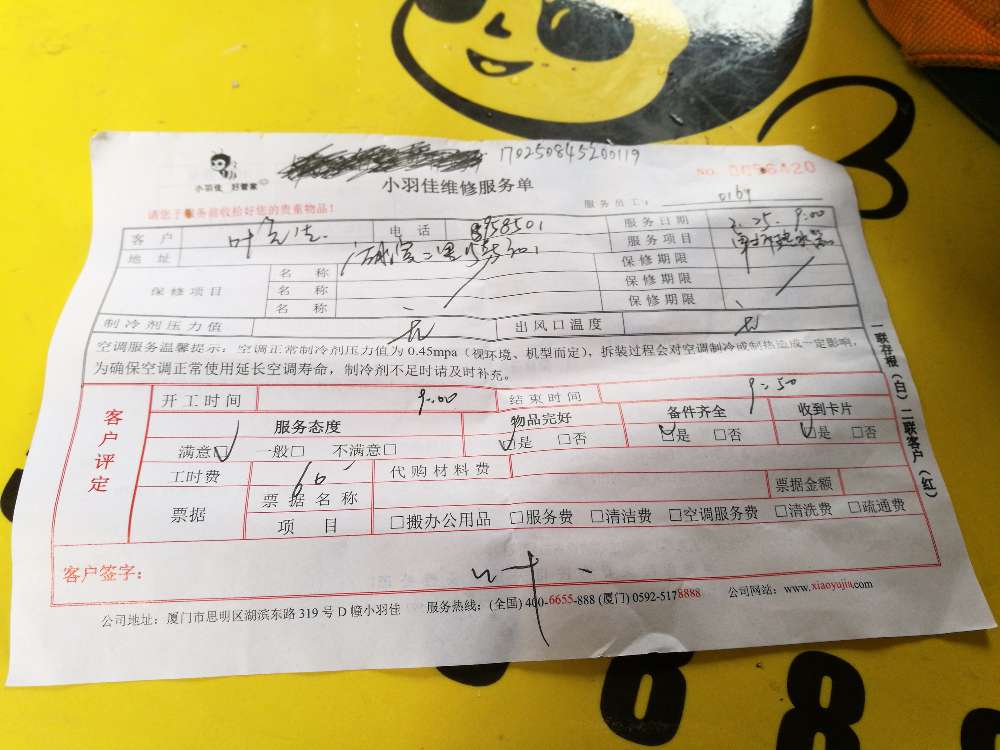 170250845200119
小羽佳 好管家
小羽佳维修服务单
NO.
服务员工：
请您于服务前收拾好您的贵重物品！
客户 叶 电话 服务日期 2.25. 9:00
地址 服务项目
保修项目 名称 保修期限
名称 保修期限
名称 保修期限
制冷剂压力值 无 出风口温度 无
空调服务温馨提示：空调正常制冷剂压力值为0.45mpa（视环境、机型而定），拆装过程会对空调制冷或制热造成一定影响，
为确保空调正常使用延长空调寿命，制冷剂不足时请及时补充。
客户评定
开工时间 9:00 结束时间 9:50
服务态度 物品完好 备件齐全 收到卡片
满意☑ 一般□ 不满意□ ☑是 □否 ☑是 □否 ☑是 □否
工时费 代购材料费
票据 票据名称 票据金额
项目 □搬办公用品 □服务费 □清洁费 □空调服务费 □清洗费 □疏通费
客户签字： 叶
一联存根（白）二联客户（红）
公司地址：厦门市思明区湖滨东路319号D幢小羽佳 服务热线：(全国) 400-6655-888 (厦门) 0592-5178888 公司网站：www.xiaoyujia.com